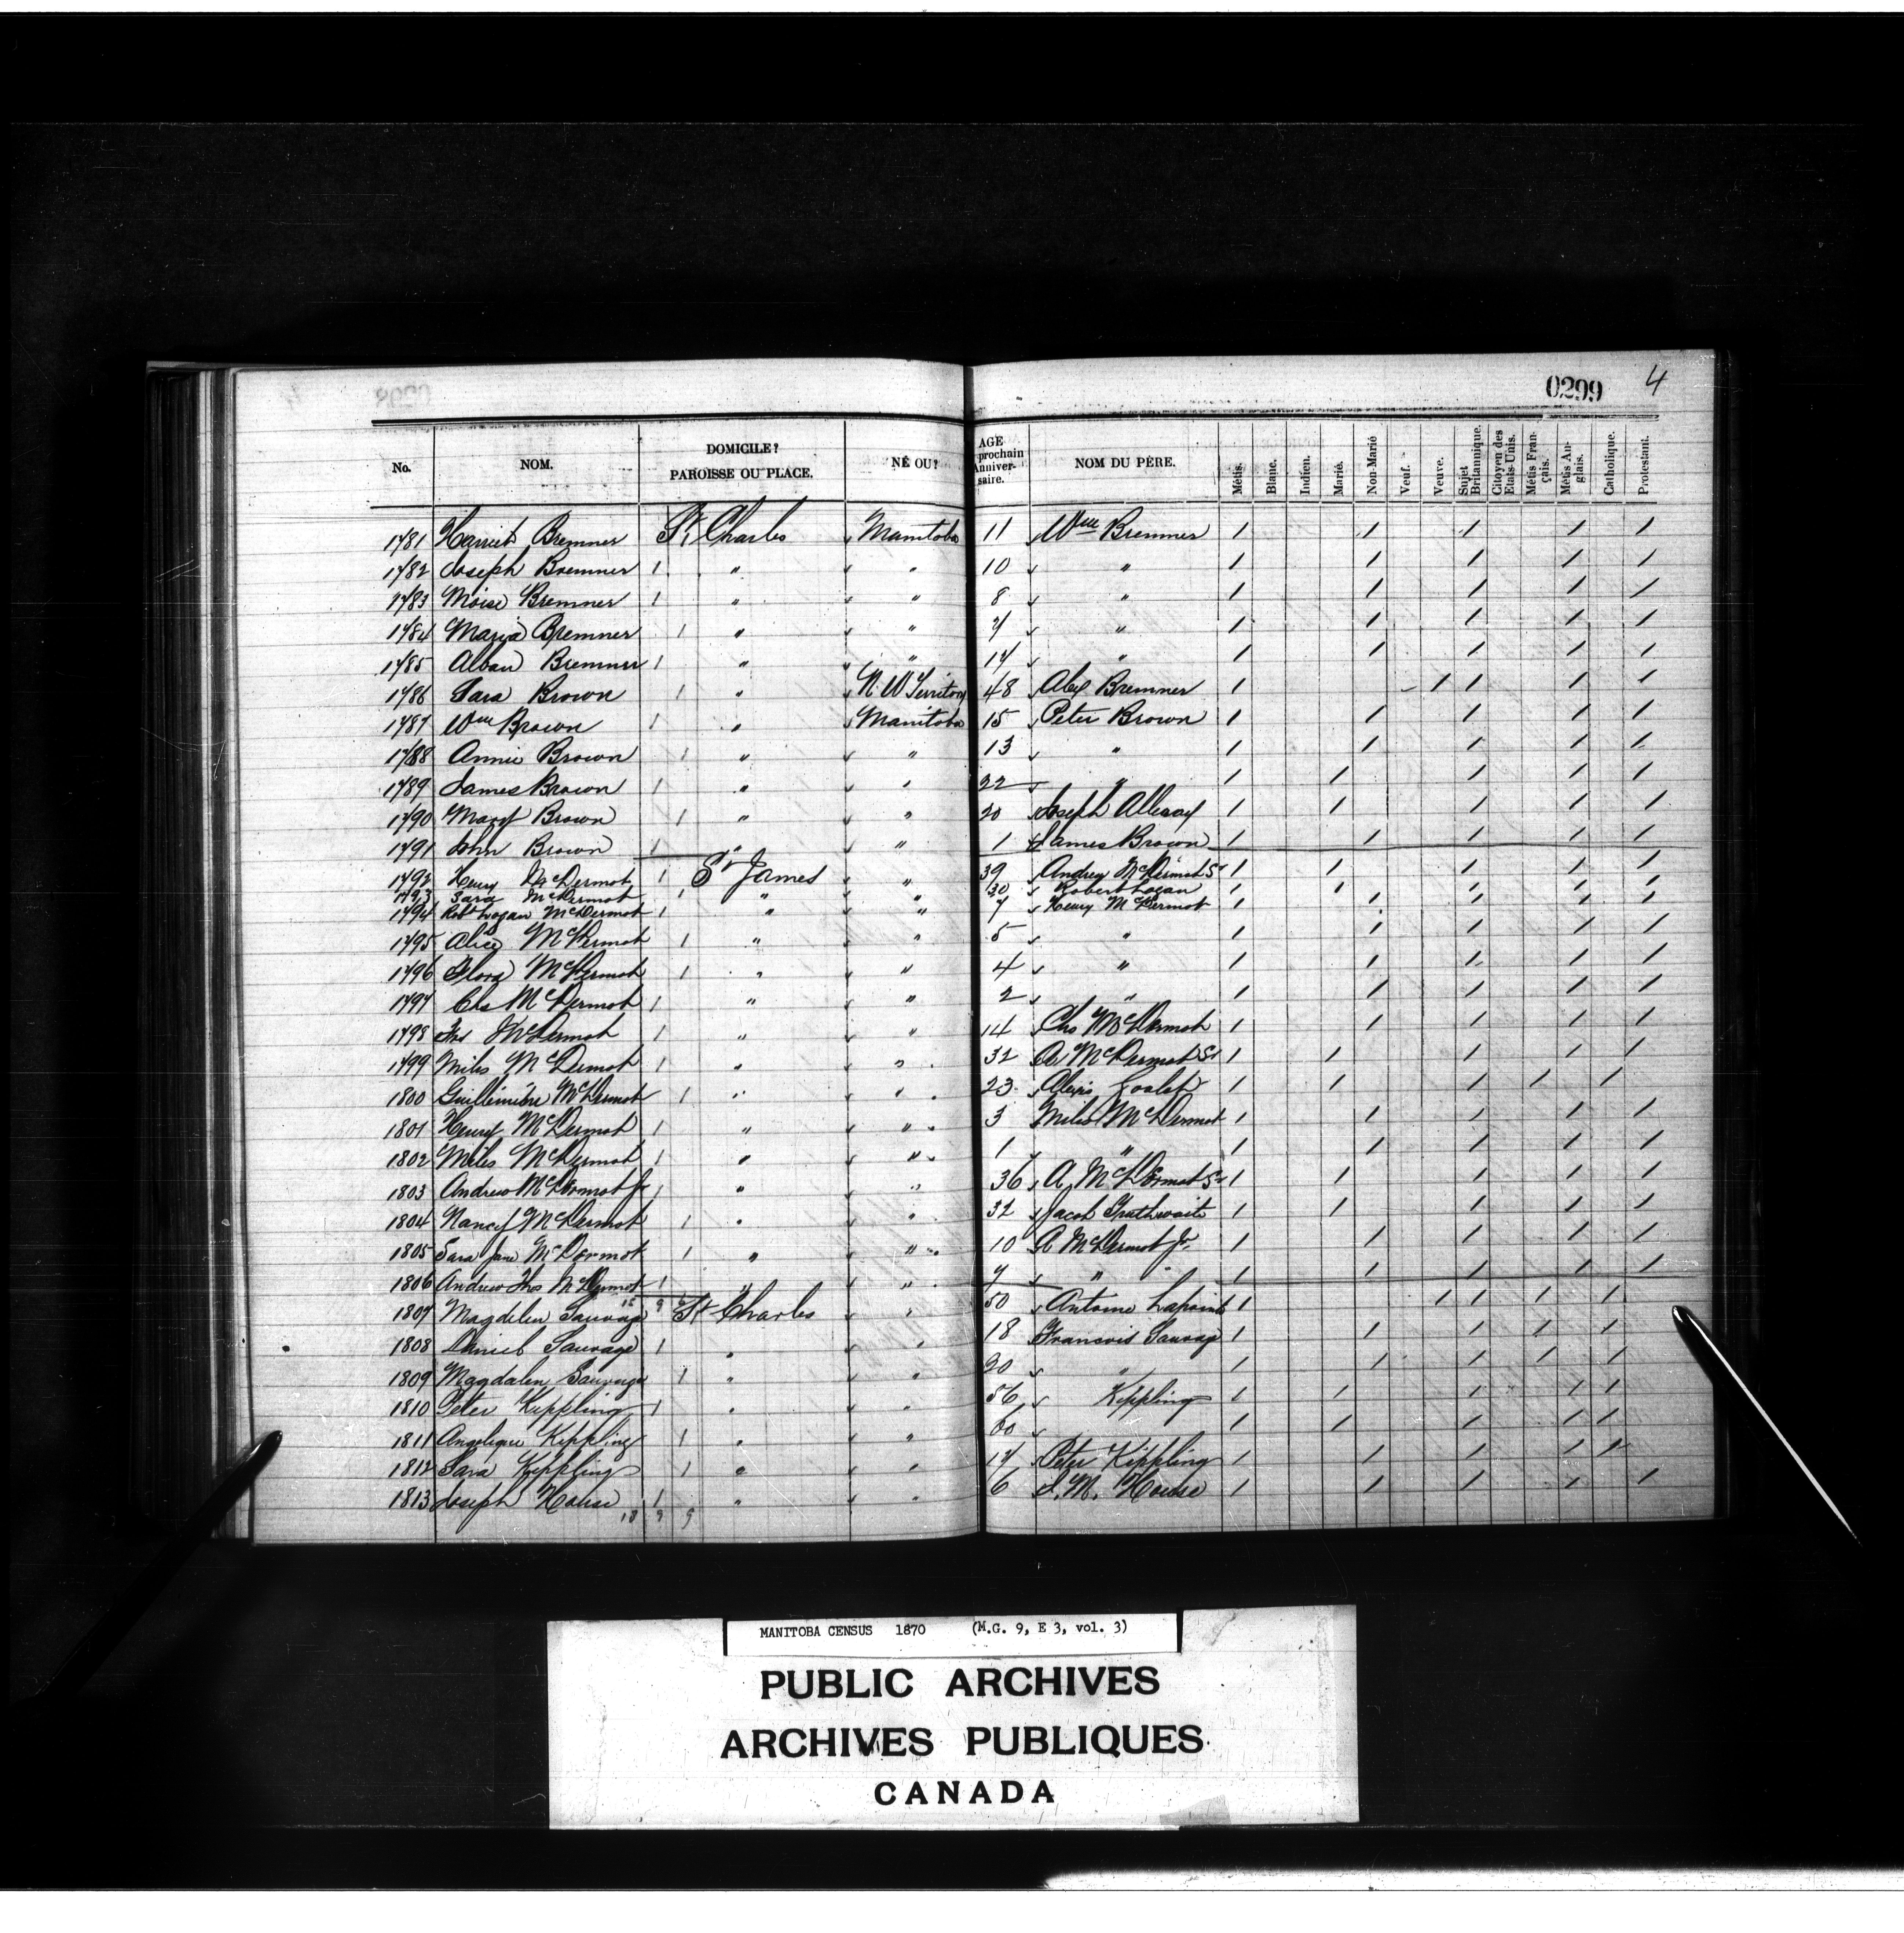 0299 4
No. NOM. DOMICILE? PAROISSE OU PLACE. NÉ OU? AGE prochain Anniver-saire. NOM DU PÈRE. Métis. Blanc. Indien. Marié. Non-Marié Veuf. Veuve. Sujet Britannique. Citoyen des Etats-Unis. Métis Fran-çais. Métis An-glais. Catholique. Protestant.
1781 Harriet Bremner St Charles Manitoba 11 Wm Bremner / / / / /
1782 Joseph Bremner 1 " " 10 " / / / / /
1783 Moise Bremner 1 " " 8 " / / / / /
1784 Maria Bremner 1 " " 7 " / / / / /
1785 Alban Bremner 1 " " 14 " / / / / /
1786 Sara Brown 1 " N. W Territory 48 Alex Bremner / / / / /
1787 Wm Brown 1 " Manitoba 15 Peter Brown / / / / /
1788 Annie Brown 1 " " 13 " / / / / /
1789 James Brown 1 " " 22 " / / / / /
1790 Mary Brown 1 " " 20 Joseph / / / / /
1791 John Brown 1 " " 1 James Brown / / / / /
1792 Henry McDermot 1 St James " 39 Andrew McDermot Sr / / / / /
1793 Sara McDermot 1 " " 30 Robert Logan / / / / /
1794 Robt Logan McDermot 1 " " 7 Henry McDermot / / / / /
1795 Alice McDermot 1 " " 5 " / / / / /
1796 Flora McDermot 1 " " 4 " / / / / /
1797 Chs McDermot 1 " " 2 " / / / / /
1798 McDermot 1 " " 14 Chs McDermot / / / / /
1799 Miles McDermot 1 " " 32 A McDermot Sr / / / / /
1800 McDermot 1 " " 23 Alexis Goulet / / / / /
1801 Henry McDermot 1 " " 3 Miles McDermot / / / / /
1802 Miles McDermot 1 " " 1 " / / / / /
1803 Andrew McDermot Jr 1 " " 36 A McDermot Sr / / / / /
1804 Nancy McDermot 1 " " 32 Jacob Truthwaite / / / / /
1805 Sara Jane McDermot 1 " " 10 A McDermot Jr. / / / / /
1806 Andrew Thos McDermot 1 " " 7 " / / / / /
1807 Magdelen Sauvage St Charles " 50 Antoine Lapointe / / / / /
1808 Daniel Sauvage 1 " " 18 Francois Sauvage / / / / /
1809 Magdalen Sauvage 1 " " 20 " / / / / /
1810 Peter Kippling 1 " " 56 Kippling / / / / /
1811 Angelique Kippling 1 " " 60 / / / / /
1812 Sara Kippling 1 " " 14 Peter Kippling / / / / /
1813 Joseph House 1 " " 6 J. M. House / / / / /
18 9 9
MANITOBA CENSUS 1870 (M.G. 9, E 3, vol. 3)
PUBLIC ARCHIVES
ARCHIVES PUBLIQUES
CANADA